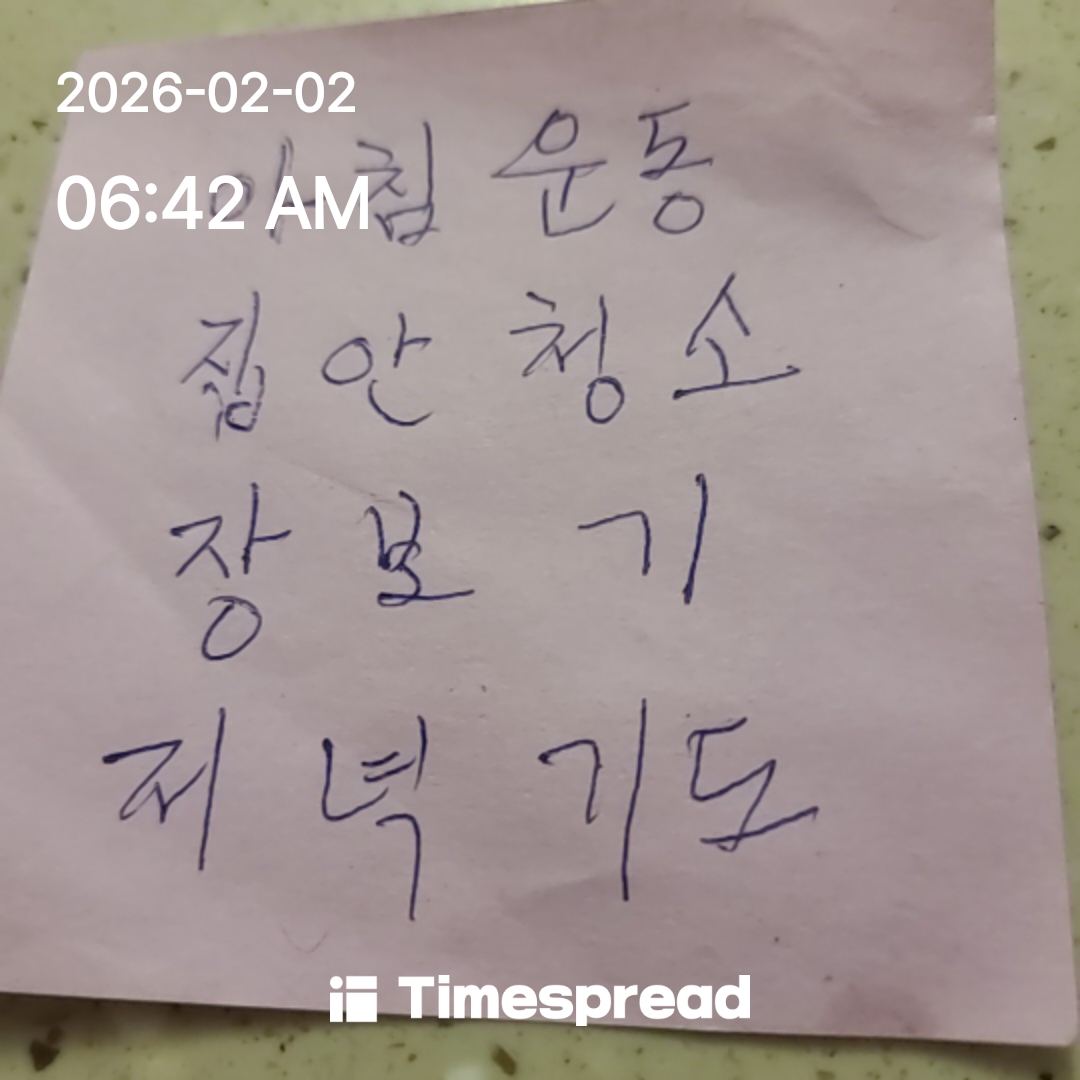 2026-02-02
아침 운동
06:42 AM
집 안 청소
장보기
저녁 기도
Timespread